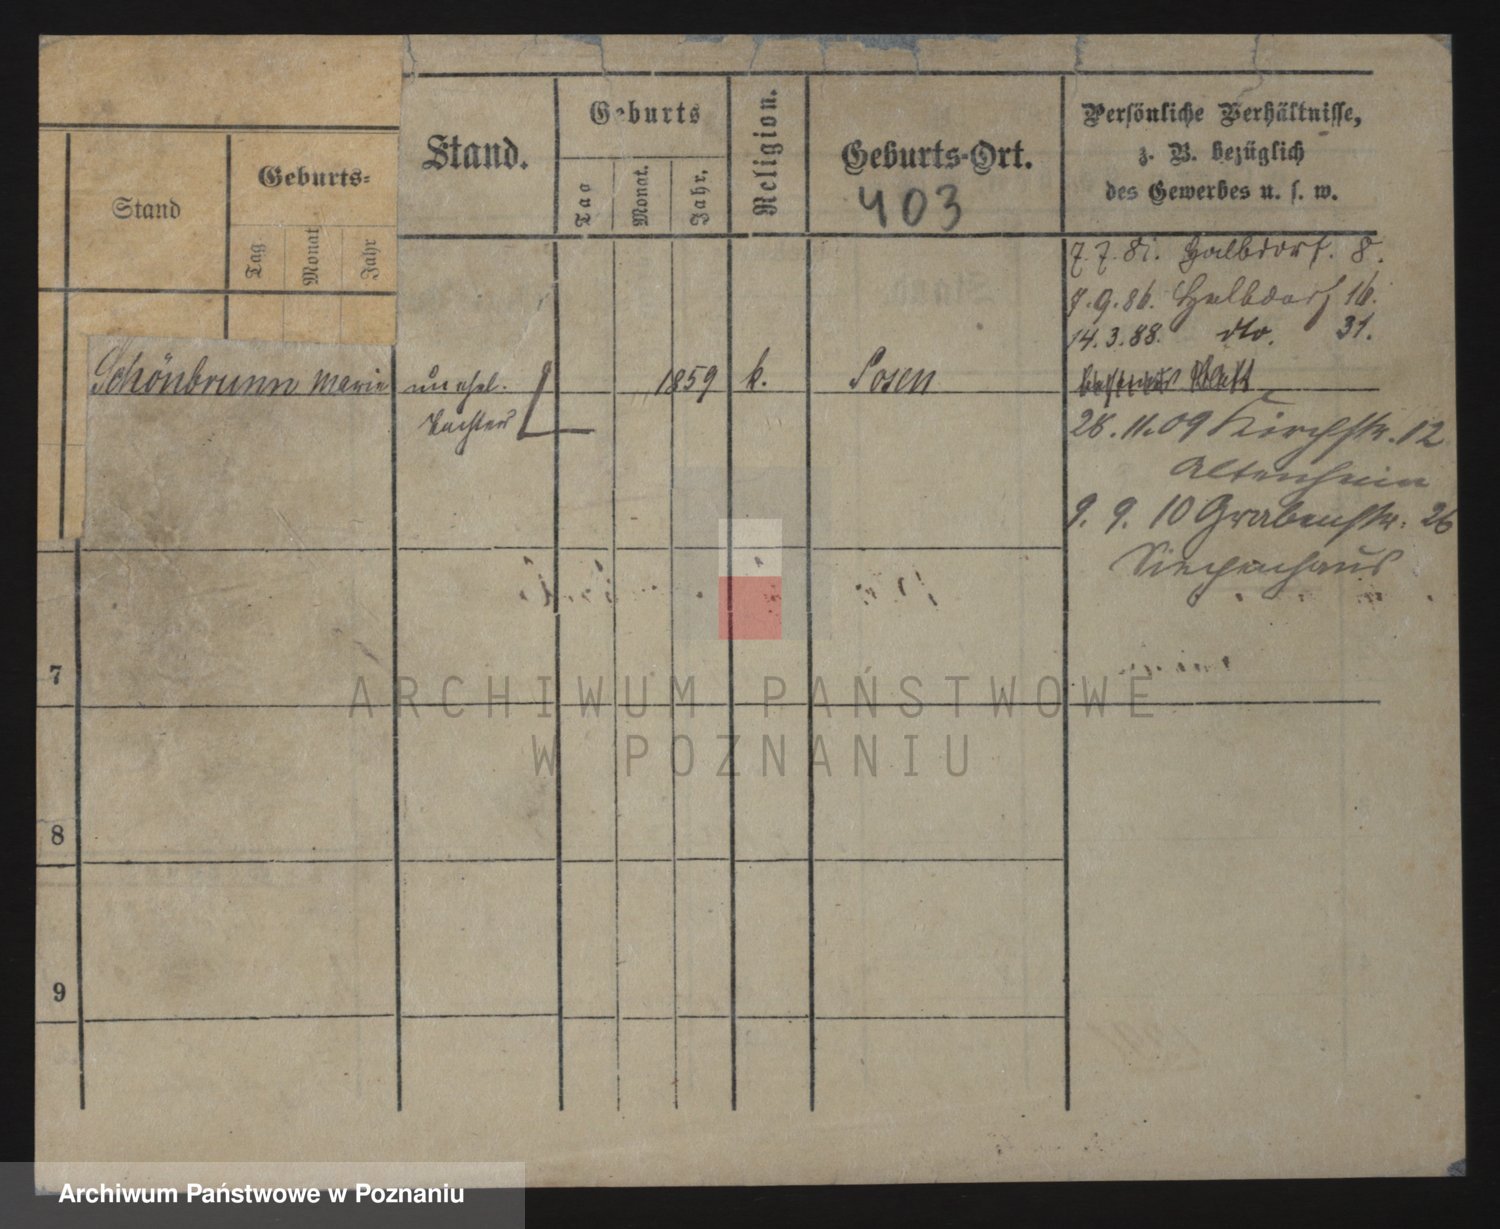 Stand
Geburts-
Tag
Monat
Jahr
Stand.
Geburts
Tag
Monat.
Jahr.
Religion.
Geburts-Ort.
403
Persönliche Verhältnisse,
z. B. bezüglich
des Gewerbes u. s. w.
7.7.81. Halbdorf. 8.
7.9.86. Halbdorf 16.
14.3.88. dto. 31.
Schönbrunn Marie unehel. 1859 k. Posen
Tochter
28.11.09 Kirchstr. 12
Altenheim
9. 9. 10 Grabenstr. 26
Siechenhaus
7
8
9
ARCHIWUM PAŃSTWOWE
W POZNANIU
Archiwum Państwowe w Poznaniu